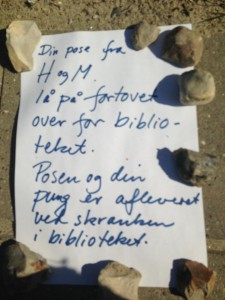 Din pose fra
H og M.
lå på fortovet
over for biblio-
teket.
Posen og din
pung er afleveret
ved skranken
i biblioteket.